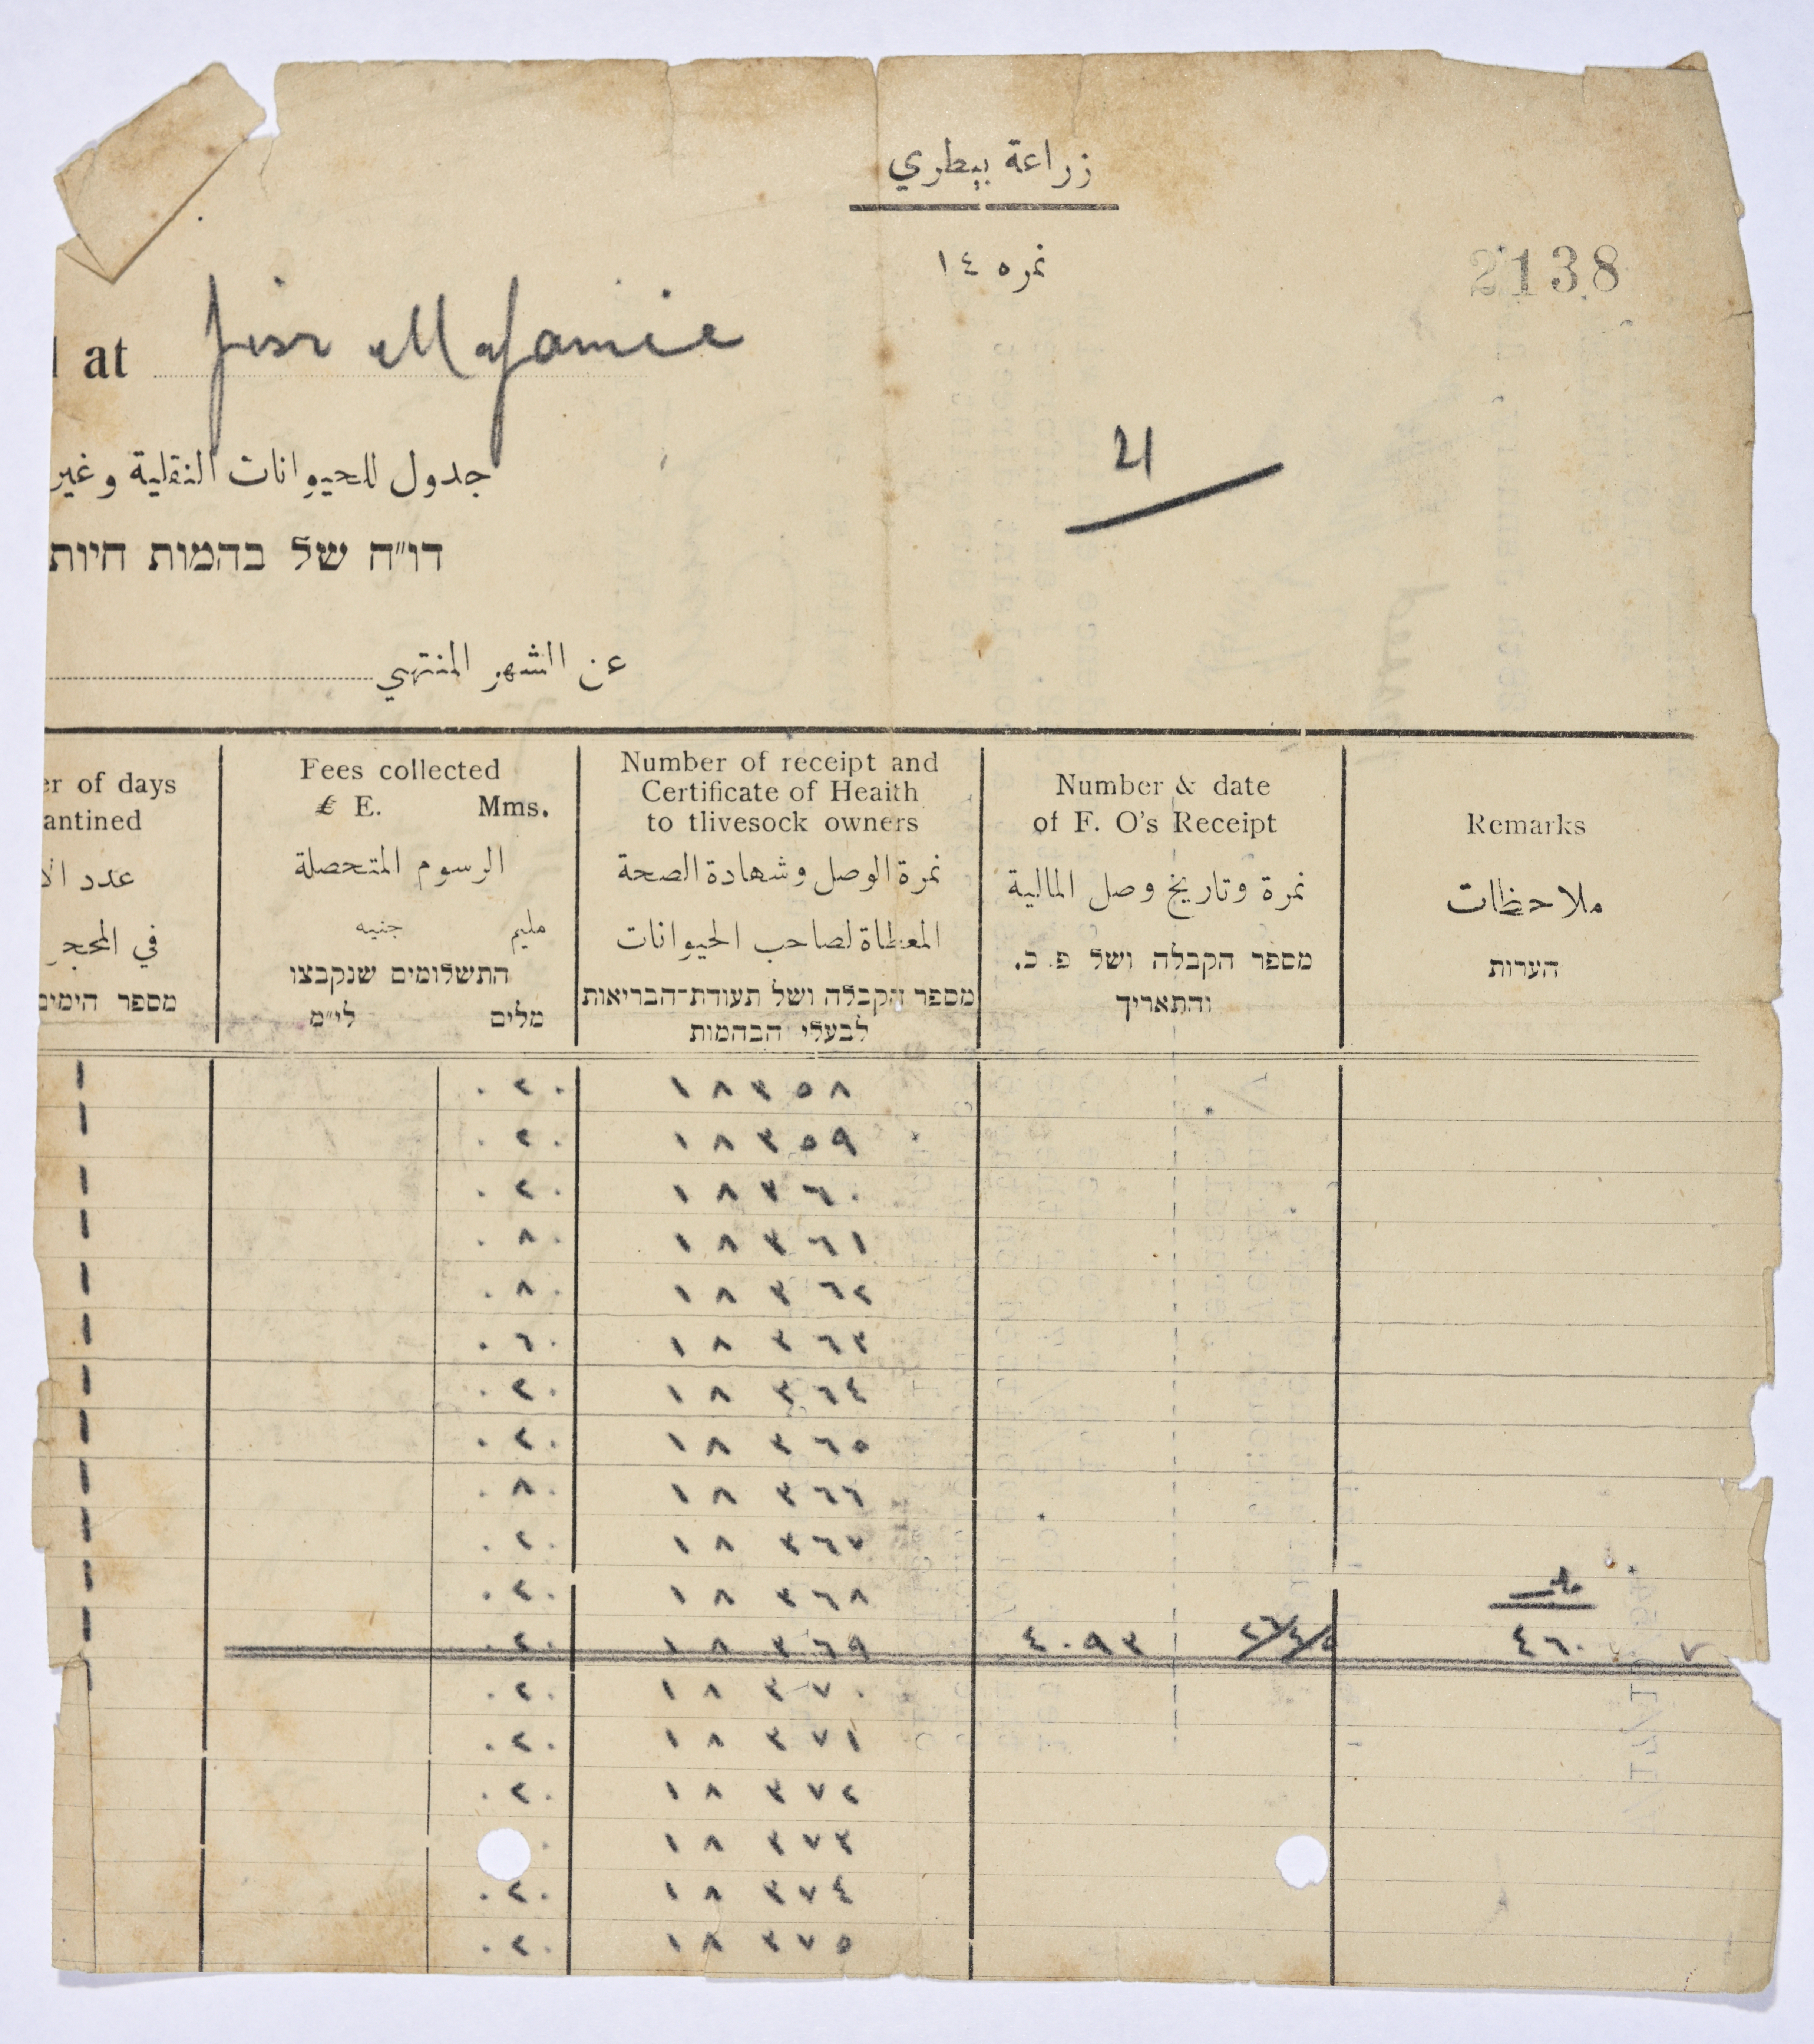 زراعة بيطري
نمره ١٤
2138
at Jisr el Majamie
21
جدول للحيوانات النقلية وغير
דו״ח של בהמות חיות
عن الشهر المنتهي
er of days
antined
عدد الا
في المحجر
מספר הימים
Fees collected
£ E. Mms.
الرسوم المتحصلة
مليم جنيه
התשלומים שנקבצו
מלים לי״מ
Number of receipt and
Certificate of Heaith
to tlivesock owners
نمرة الوصل وشهادة الصحة
المعطاة لصاحب الحيوانات
מספר הקבלה ושל תעודת־הבריאות
לבעלי הבהמות
Number & date
of F. O's Receipt
نمرة وتاريخ وصل المالية
מספר הקבלה ושל פ. כ.
והתאריך
Remarks
ملاحظات
הערות
١ ٠٢٠ ١٨٣٥٨
١ ٠٢٠ ١٨٣٥٩
١ ٠٢٠ ١٨٣٦٠
١ ٠٨٠ ١٨٣٦١
١ ٠٨٠ ١٨٣٦٢
١ ٠٦٠ ١٨٣٦٣
١ ٠٢٠ ١٨٣٦٤
١ ٠٢٠ ١٨٣٦٥
١ ٠٨٠ ١٨٣٦٦
١ ٠٢٠ ١٨٣٦٧
١ ٠٢٠ ١٨٣٦٨
١ ٠٢٠ ١٨٣٦٩ ٤٠٩٣ ٤٦٠ ٧
١ ٠٢٠ ١٨٣٧٠
٠٢٠ ١٨٣٧١
٠٢٠ ١٨٣٧٢
٠ ١٨٣٧٣
٠٢٠ ١٨٣٧٤
٠٢٠ ١٨٣٧٥